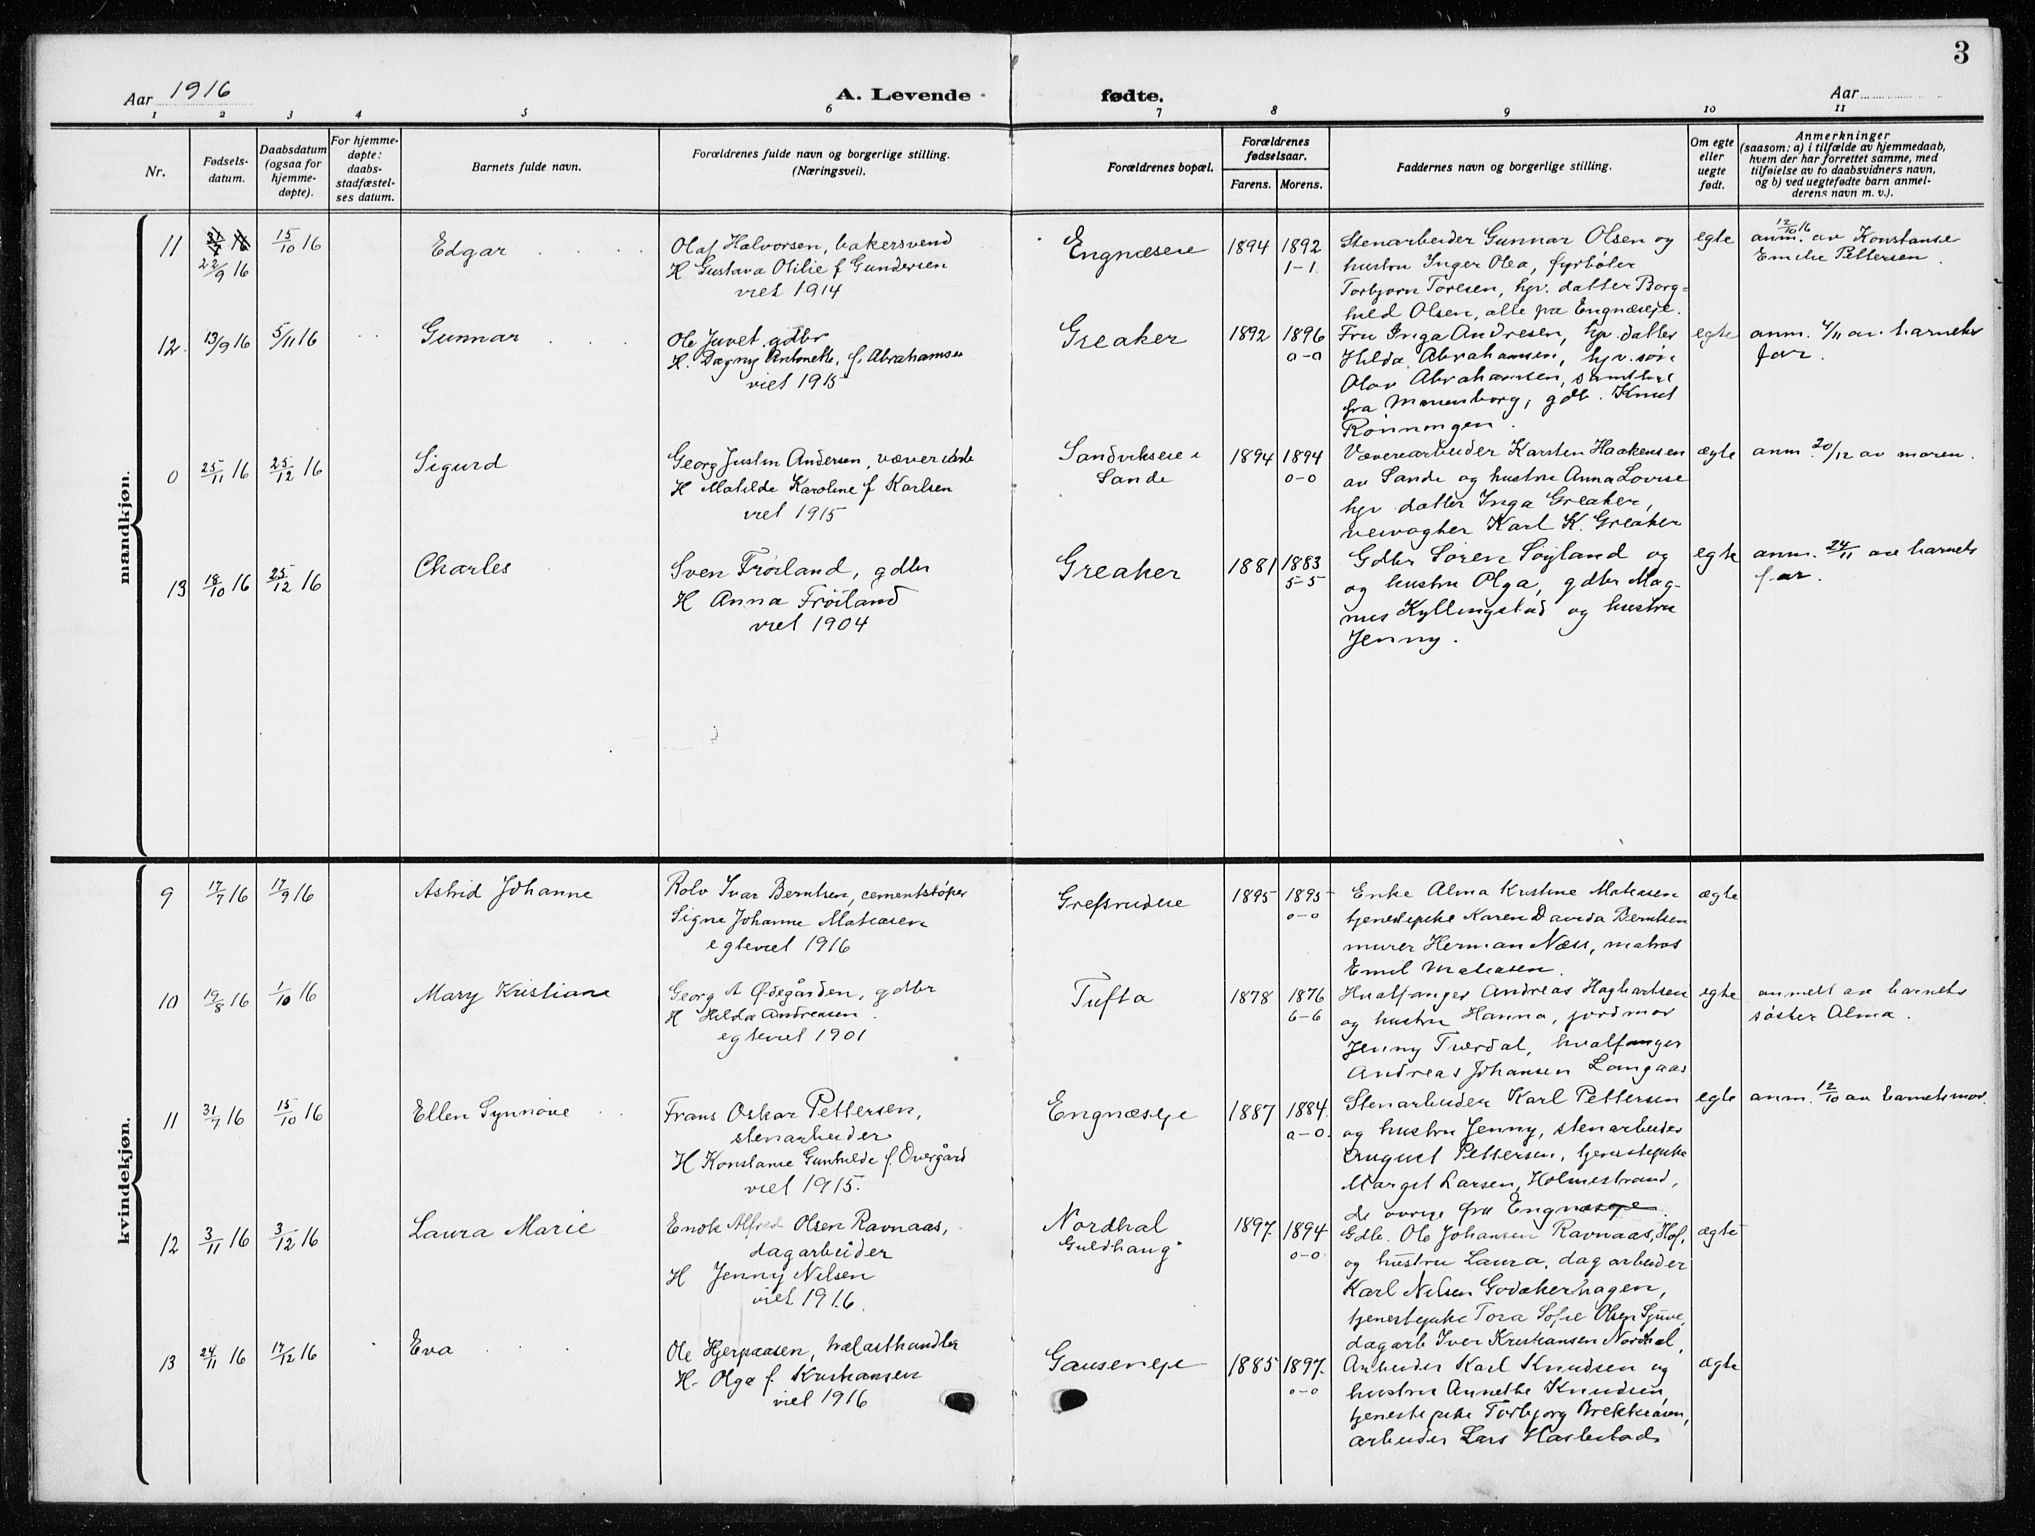 3
Aar 1916
A. Levende fødte.
Aar
1 2 3 4 5 6 7 8 9 10 11
Nr.
Fødsels-
datum.
Daabsdatum
(ogsaa for
hjemme-
døpte).
For hjemme-
døpte:
daabs-
stadfæstel-
ses datum.
Barnets fulde navn.
Forældrenes fulde navn og borgerlige stilling.
(Næringsvei).
Forældrenes bopæl.
Forældrenes
fødselsaar.
Farens. Morens.
Faddernes navn og borgerlige stilling.
Om egte
eller
uegte
født.
Anmerkninger
(saasom: a) i tilfælde av hjemmedaab,
hvem der har forrettet samme, med
tilføielse av to daabsvidners navn,
og b) ved uegtefødte barn anmel-
derens navn m. v.).
mandkjøn.
11
22/9 16
15/10 16
Edgar
Olaf Halvorsen, bakersvend
H Gustava Otilie f Gundersen
viet 1914
Engnæseie
1894
1892
1-1.
Stenarbeider Gunnar Olsen og
hustru Inger Olea, fyrbøter
Torbjørn Toresen, hjv. datter Borg-
hild Olsen, alle pa Engnæseje.
egte
12/10 16
anm. av Konstanse
Emilie Pettersen.
12.
13/9 16
5/11 16
Gunnar
Ole Juvet, gdbr
H. Dagny Antonette, f. Abrahamsen
viet 1915
Greaker
1892
1896
0-0
Fru Inga Andresen, hjv. datter
Hilda Abrahamsen, hjv. søn
Olav Abrahamsen, samtlige
fra Manenborg, gdb. Knut
Rønningen.
egte
anm. 4/11 av barnets
far.
0
25/11 16
25/12 16
Sigurd
Georg Justin Andersen, væveriarb
H Matilde Karoline f Karlsen
viet 1915
Sandvikseie i
Sande
1894
1894
0-0
Væverearbeider Karsten Haakensen
av Sande og hustru Anna Lovise
hjv datter Inga Greaker,
veivogter Karl K. Greaker
ægte
anm. 20/12 av moren.
13
18/10 16
25/12 16
Charles
Sven Frøiland, gdbr
H Anna Frøiland
viet 1904
Greaker
1881
1883
5-5
Gdbr Søren Søyland og
og hustru Olga, gdbr Mag-
nus Kyllingstad og hustru
Jenny.
egte
anm. 24/11 av barnets
far.
kvindekjøn.
9
17/7 16
17/9 16
Astrid Johanne
Rolv Ivar Berntsen, cementstøper
Signe Johanne Matiasen
egteviet 1916
Grefsrudeie
1895
1895
0-0
Enke Alma Kristine Matiasen
tjenestepike Karen Davida Berntsen
murer Herman Næss, matros
Emil Matiasen.
ægte
10
19/8 16
1/10 16
Mary Kristiane
Georg A Ødegården, gdbr
H Hilda Andreasen.
egteviet 1901
Tufta
1878
1876
6-6
Hvalfanger Andreas Hagbartsen
og hustru Hanna, jordmor
Jenny Tverdal, hvalfanger
Andreas Johansen Langaas
egte
anmelt av barnets
søster Alma.
11
31/7 16
15/10 16
Ellen Synnøve
Frans Oskar Pettersen,
stenarbeider
H Konstanse Gunhilde f. Overgård
viet 1915.
Engnæseje
1887
1884.
0-0.
Stenarbeider Karl Pettersen
og hustru Jenny, stenarbeider
August Pettersen, tjenestepike
Margit Larsen, Holmestrand,
de øvrige fra Engnæseje.
egte
anm. 12/10 av barnets mor.
12
3/11 16
3/12 16
Laura Marie
Enok Alfred Olsen Ravnaas,
dagarbeider
H Jenny Nilsen
viet 1916.
Nordhal
Guldhaug
1897.
1894
0-0.
Gdb. Ole Johansen Ravnaas, Hof,
og hustru Laura, dagarbeider
Karl Nilsen Godakerhagen,
tjenestepike Tora Sofie Olsen Sjuve,
dagarb Iver Kristiansen Nordhal,
ægte
13
24/11 16
17/12 16
Eva
Ole Hjerpaasen, trælasthandler
H. Olga f. Kristiansen
viet 1916
Gauseneje
1885
1897.
0-0
Arbeider Karl Knudsen og
hustru Annette Knudsen,
tjenestepike Torbjørg Brekkeåsen,
arbeider Lars Haslestad
ægte